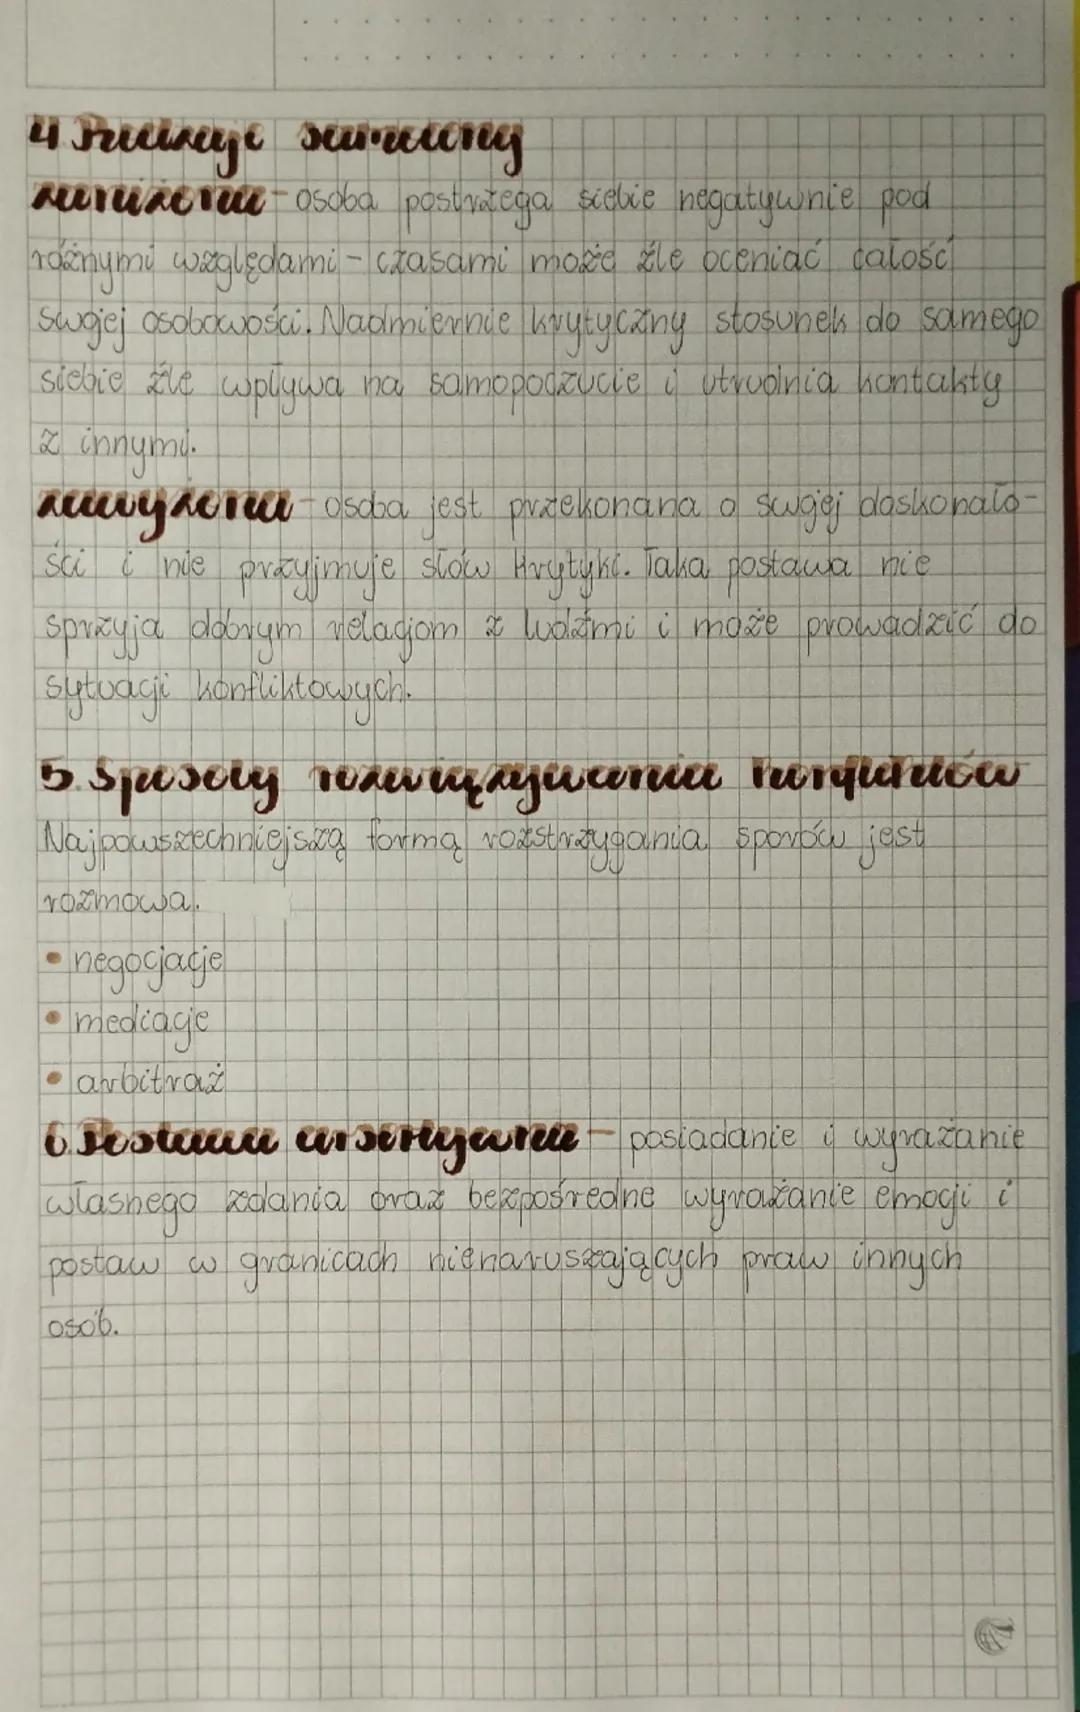 4 Rodzaje samooceny
zaniżona - osoba postrzega siebie negatywnie pod
różnymi względami - czasami może źle oceniać całość
swojej osobowości. Nadmiernie krytyczny stosunek do samego
siebie źle wpływa na samopoczucie i utrudnia kontakty
z innymi.
zawyżona - osoba jest przekonana o swojej doskonało-
ści i nie przyjmuje słów krytyki. Taka postawa nie
sprzyja dobrym relacjom z ludźmi i może prowadzić do
sytuacji konfliktowych.
5 Sposoby rozwiązywania konfliktów
Najpowszechniejszą formą rozstrzygania sporów jest
rozmowa.
• negocjacje
• mediacje
• arbitraż
6 Postawa asertywna - posiadanie i wyrażanie
własnego zdania oraz bezpośredne wyrażanie emocji i
postaw w granicach nienaruszających praw innych
osób.